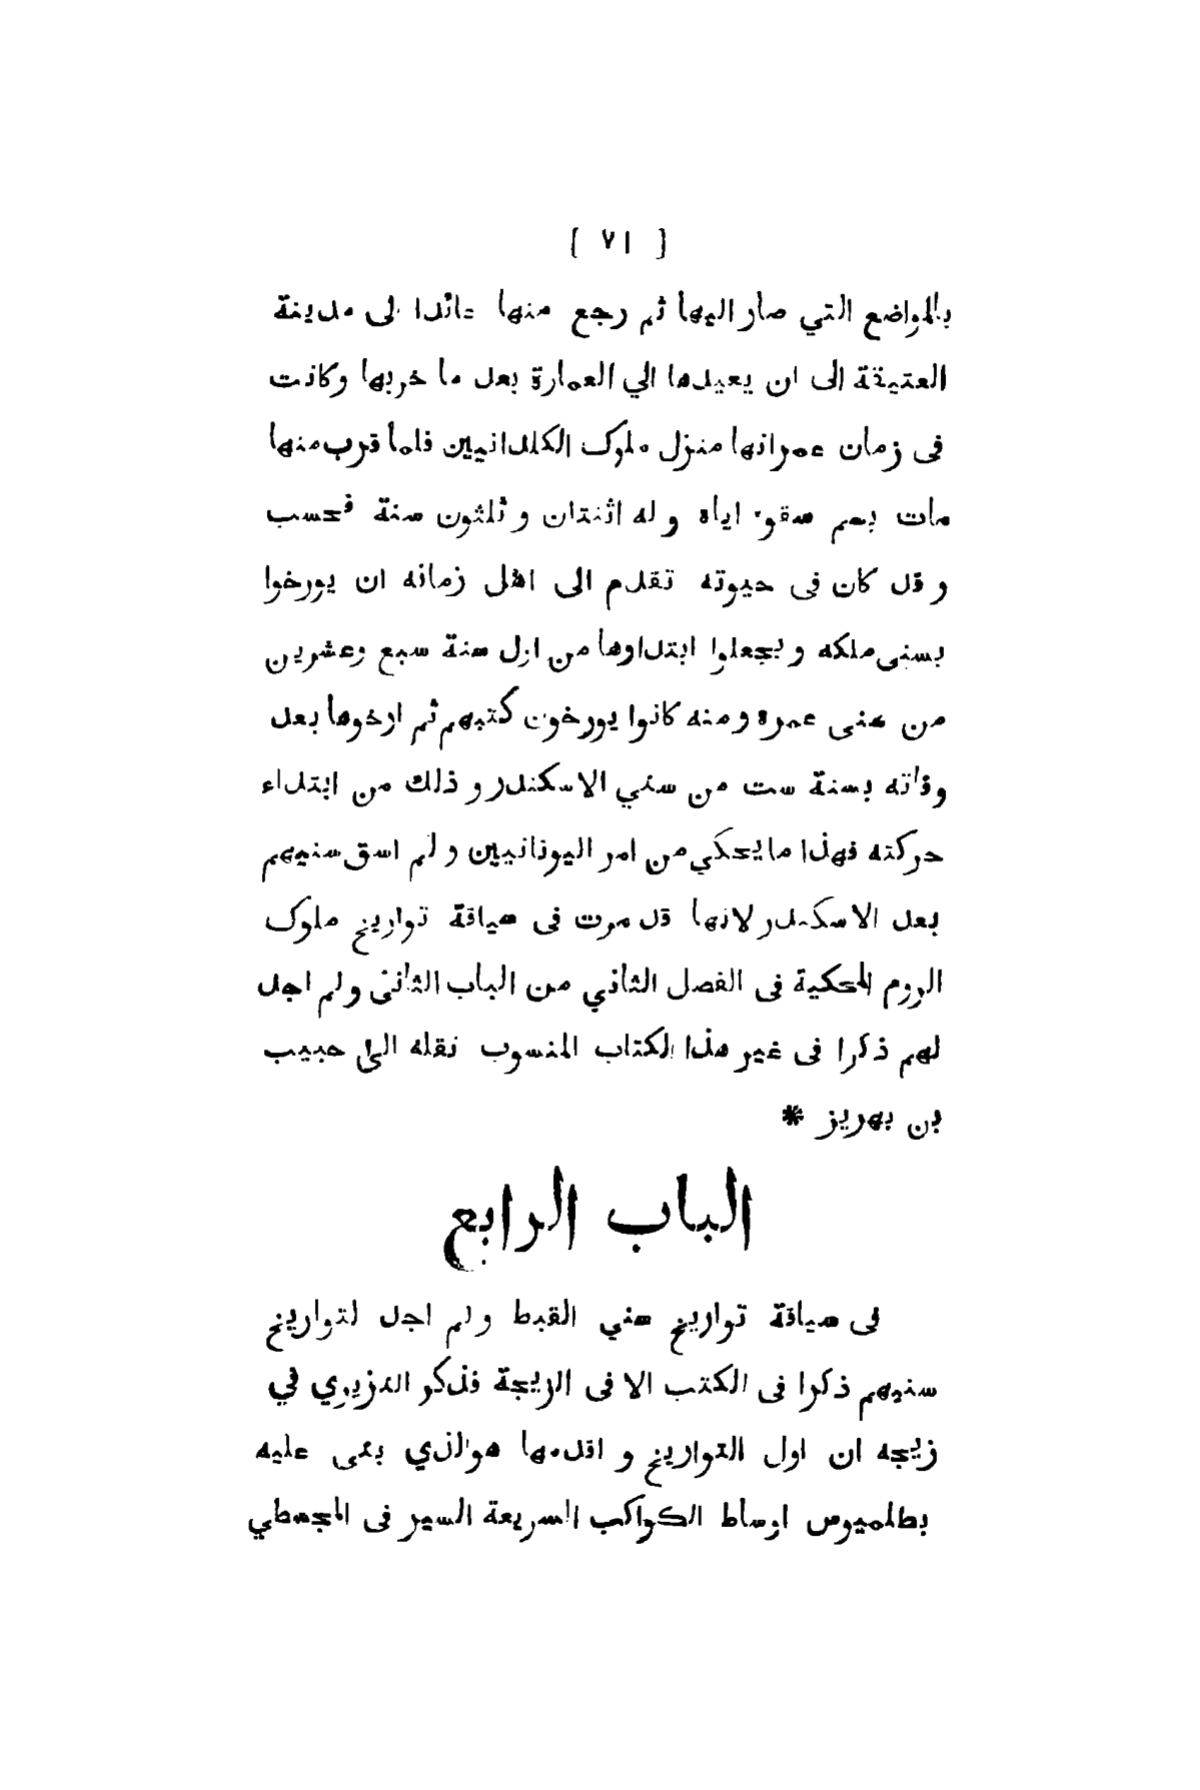 [ ٧١ ]
بالمواضع التي صار اليها ثم رجع منها عائدا الى مدينة
العتيقة الى ان يعيدها الي العمارة بعد ما خربها وكانت
فى زمان عمرانها منزل ملوك الكلدانيين فلما قرب منها
مات بسم سقوه اياه وله اثنتان وثلثون سنة فحسب
وقد كان فى حيوته تقدم الى اهل زمانه ان يورخوا
بسنى ملكه ويجعلوا ابتداوها من اول سنة سبع وعشرين
من سنى عمره ومنه كانوا يورخون كتبهم ثم ارخوها بعد
وفاته بسنة ست من سني الاسكندر و ذلك من ابتداء
حركته فهذا ما يحكي من امر اليونانيين و لم اسق سنيهم
بعد الاسكندر لانها قد مرت فى سياقة تواريخ ملوك
الروم المحكية فى الفصل الثاني من الباب الثانى ولم اجد
لهم ذكرا فى غير هذا الكتاب المنسوب نقله الى حبيب
بن بهريز *
الباب الرابع
فى سياقة تواريخ سني القبط ولم اجد لتواريخ
سنيهم ذكرا فى الكتب الا فى الزيجة فذكر النزيري في
زيجه ان اول التواريخ و اقدمها هوالذي بنى عليه
بطلميوس اوساط الكواكب السريعة السير فى المجسطي